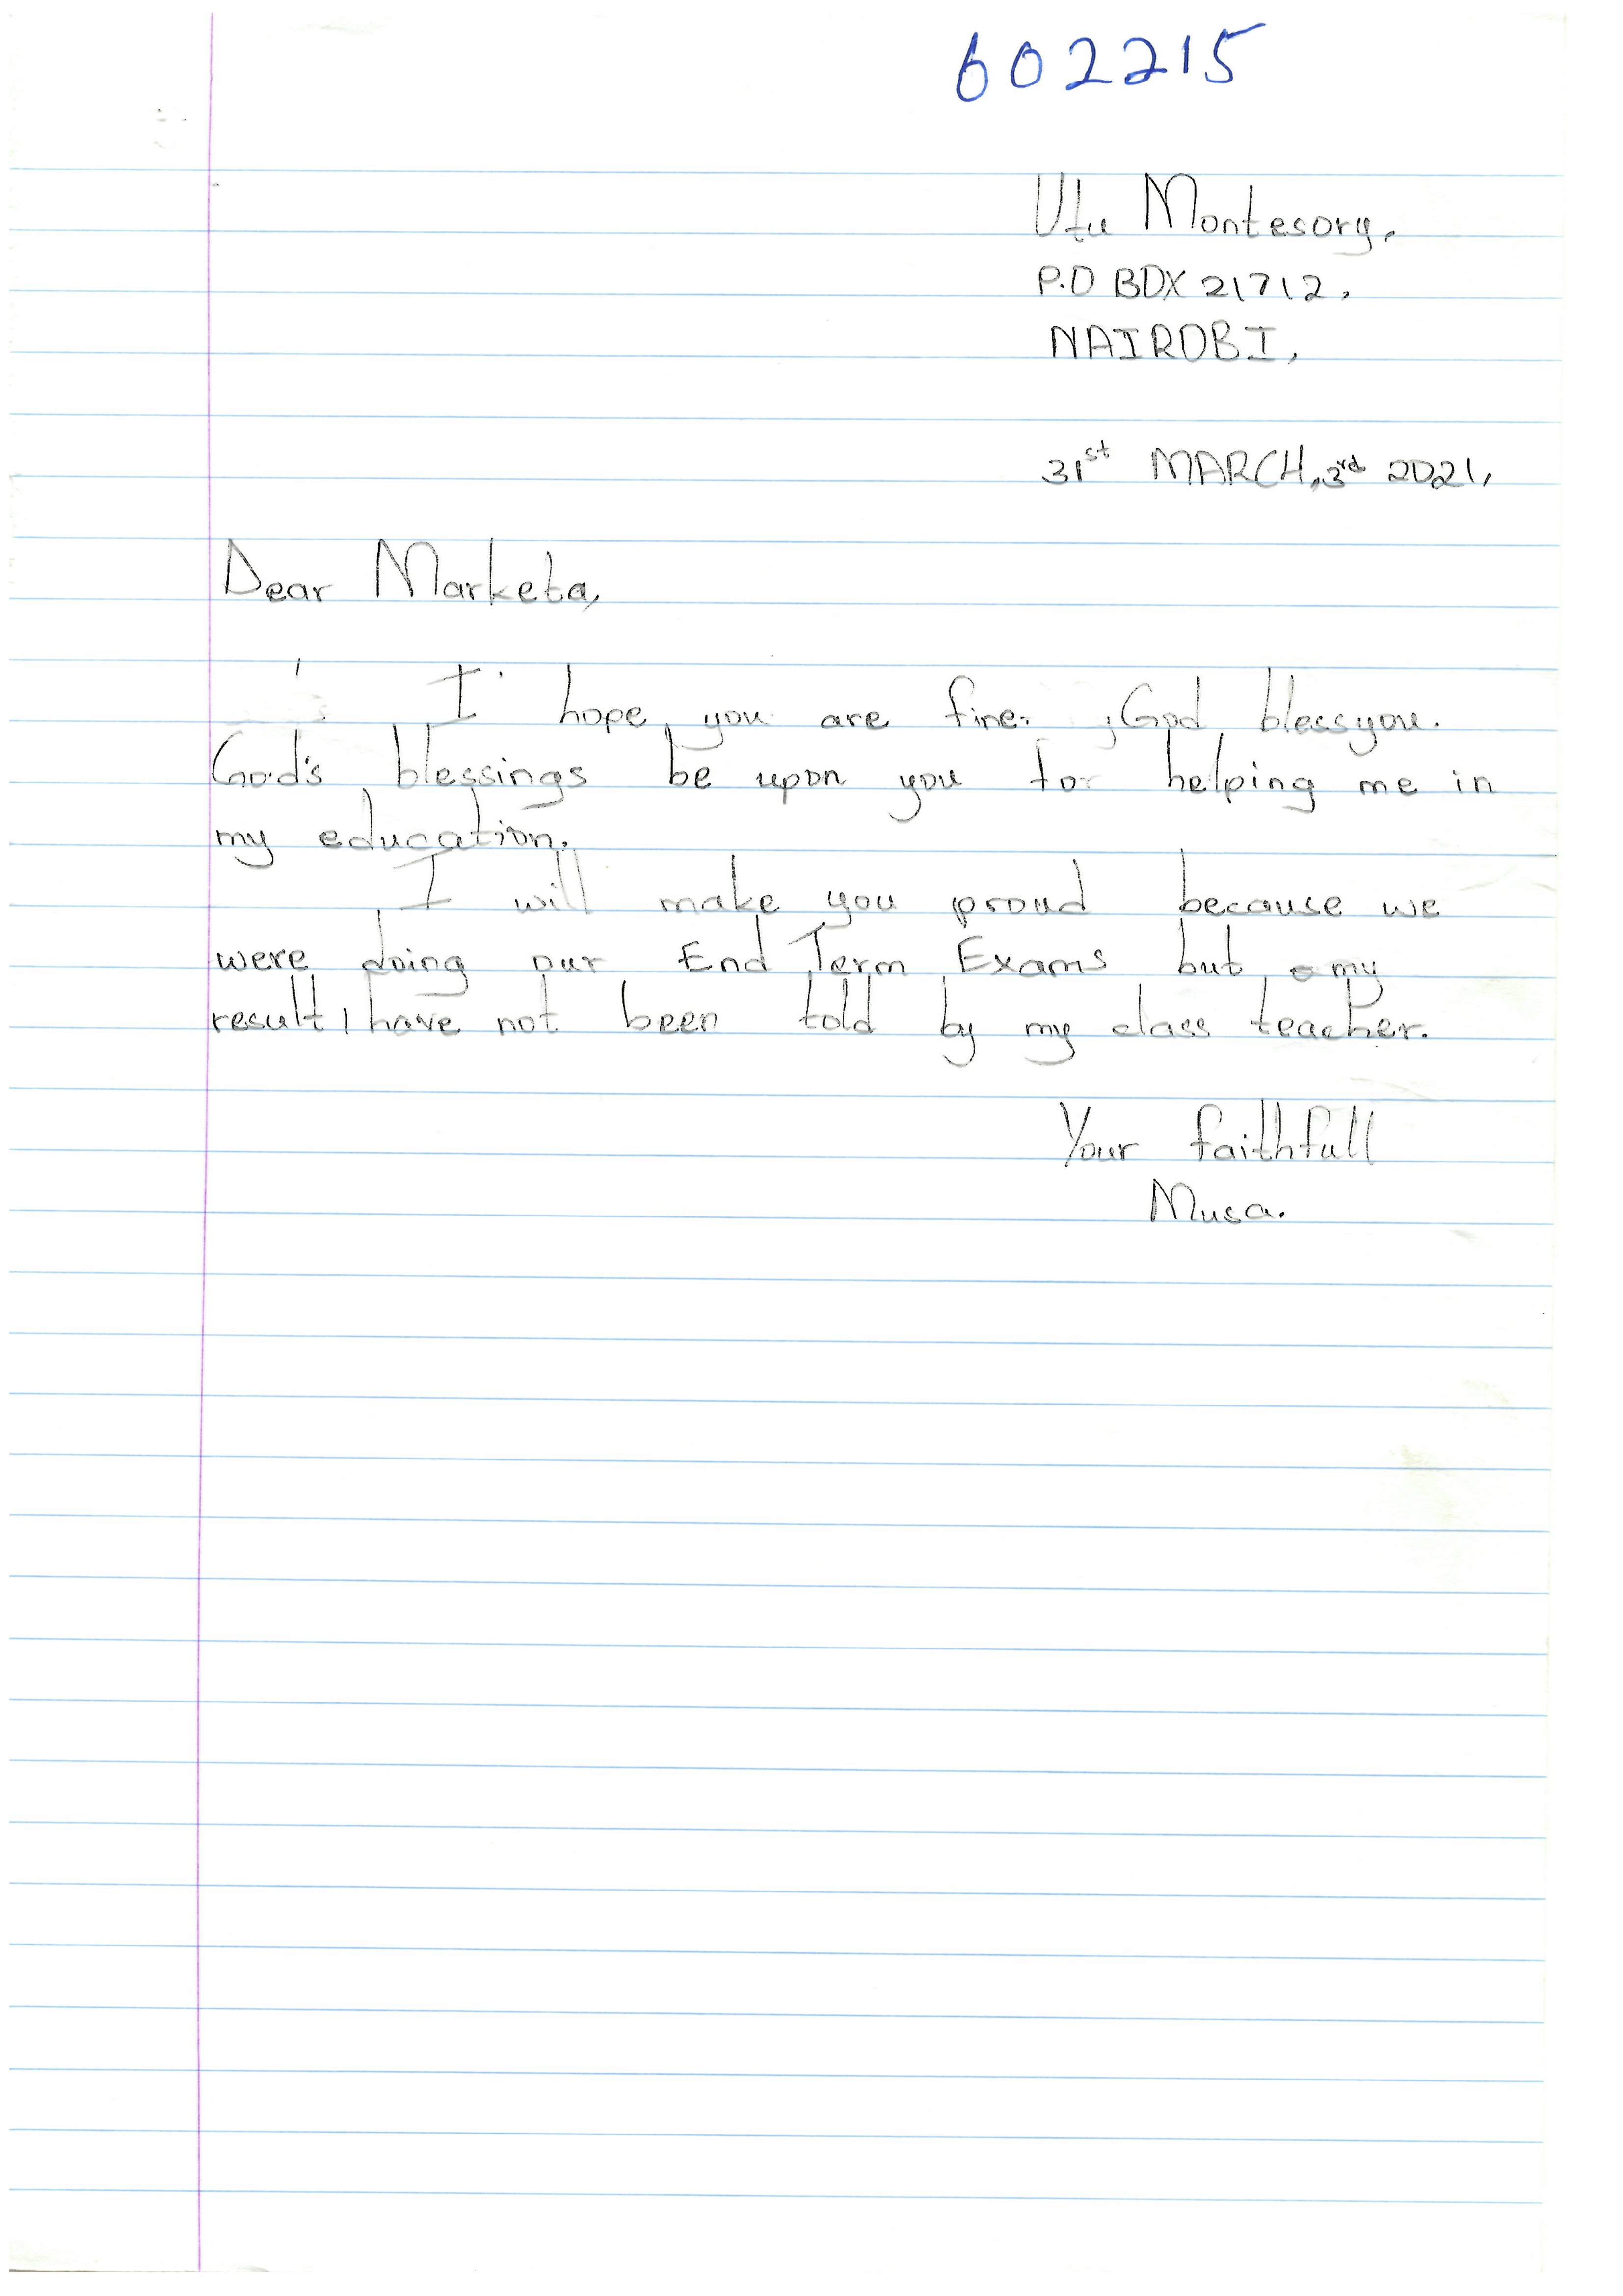 602215
Utu Montesory.
P.O BOX 21712,
NAIROBI,
31st MARCH,3rd 2021,
Dear Marketa,
I hope you are fine. ,God blessyou.
God's blessings be upon you for helping me in
my education.
I will make you proud because we
were doing our End Term Exams but my
result I have not been told by my class teacher.
Your faithfull
Musa.